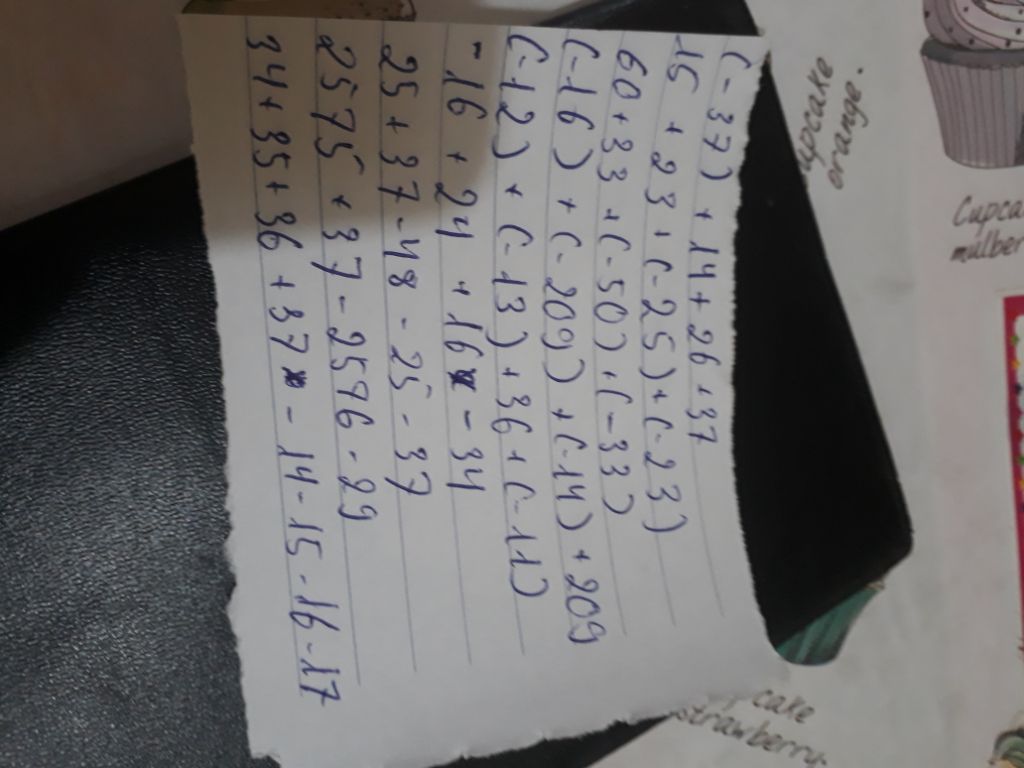 (-37) + 14 + 26 + 37
16 + 23 + (-25) + (-23)
60 + 33 + (-50) + (-33)
(-16) + (-209) + (-14) + 209
(-12) + (-13) + 36 + (-11)
-16 + 24 + 16 - 34
25 + 37 - 48 - 25 - 37
2575 + 37 - 2576 - 29
34 + 35 + 36 + 37 - 14 - 15 - 16 - 17
orange.
cake
strawberry.